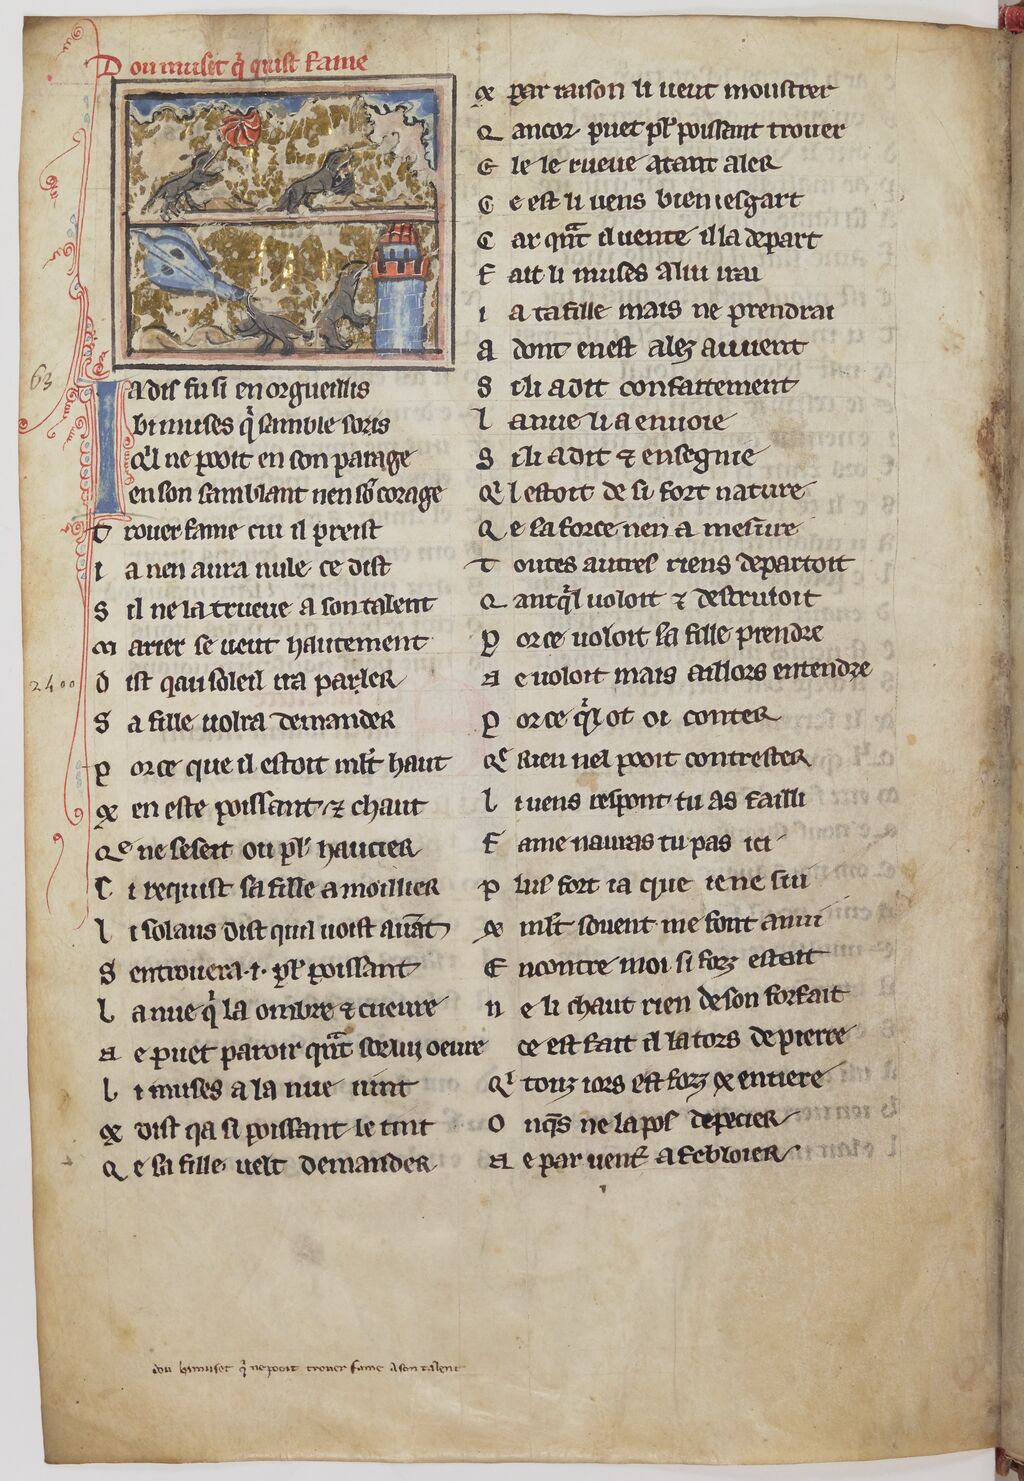 Dou muset q̃ quist fame
63
Jadis fu si enorgueillis
li muses q̃ samble soris
q̃l ne pooit en son parage
en son samblant nen sõ corage
trouer fame cui il preist
ia nen aura nule ce dist
Sil ne la trueue a son talent
marier se ueut hautement
2400
dist qau soleil ira parler
Sa fille uolra demander
porce que il estoit ml̃t haut
⁊ en este poissant ⁊ chaut
Que ne seseit ou pl᷒ haucier
Ci requist sa fille a moillier
li solaus dist quil uoist auãt
Sentrouera .i. pl᷒ poissant
la nue q̃ la ombre ⁊ cueure
ne puet paroir qñt seur lui oeure
li muses a la nue uint
⁊ dist qa si poissant le tint
Que sa fille uelt demander
⁊ par raison li ueut moustrer
Qancor puet pl᷒ poissant trouer
Ele le rueue atant aler
Ce est li uens bien iesgart
Car qñt il uente il la depart
Fait li muses a lui irai
ia ta fille mais ne prendrai
Adont en est alez au uent
Si li a dit confaitement
La nue li a enuoie
Si li a dit ⁊ ensegnie
Qil estoit de si fort nature
Qe sa force nen a mesure
toutes autres riens departoit
Qantq̃l uoloit ⁊ destruioit
Por ce uoloit sa fille prendre
Ne uoloit mais aillors entendre
Por ce q̃l ot oi conter
Qe rien nel pooit contrester
li uens respont tu as failli
Fame nauras tu pas ici
plus fort ia que ie ne sui
⁊ ml̃t souent me font anui
Encontre moi si forz estait
ne li chaut rien de son forfait
ce est fait il la tors de pierre
Qi touz iors est forz ⁊ entiere
Onq̃s ne la pos depecier
Ne par uent afebloier
dou li muset q̃ ne pooit trouer fame a son talent